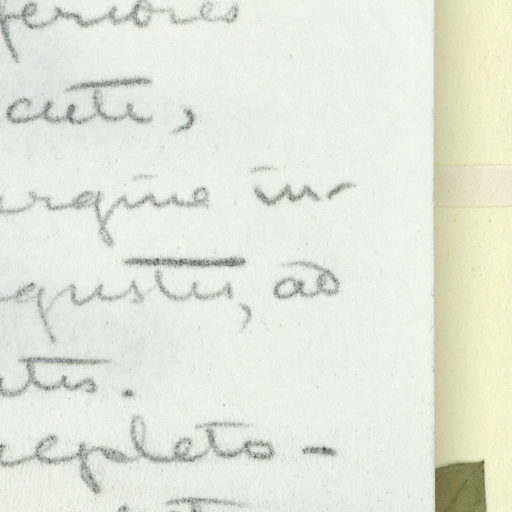 feriores
cuti,
argine in-
gustis, ad
utis.
cepleto-